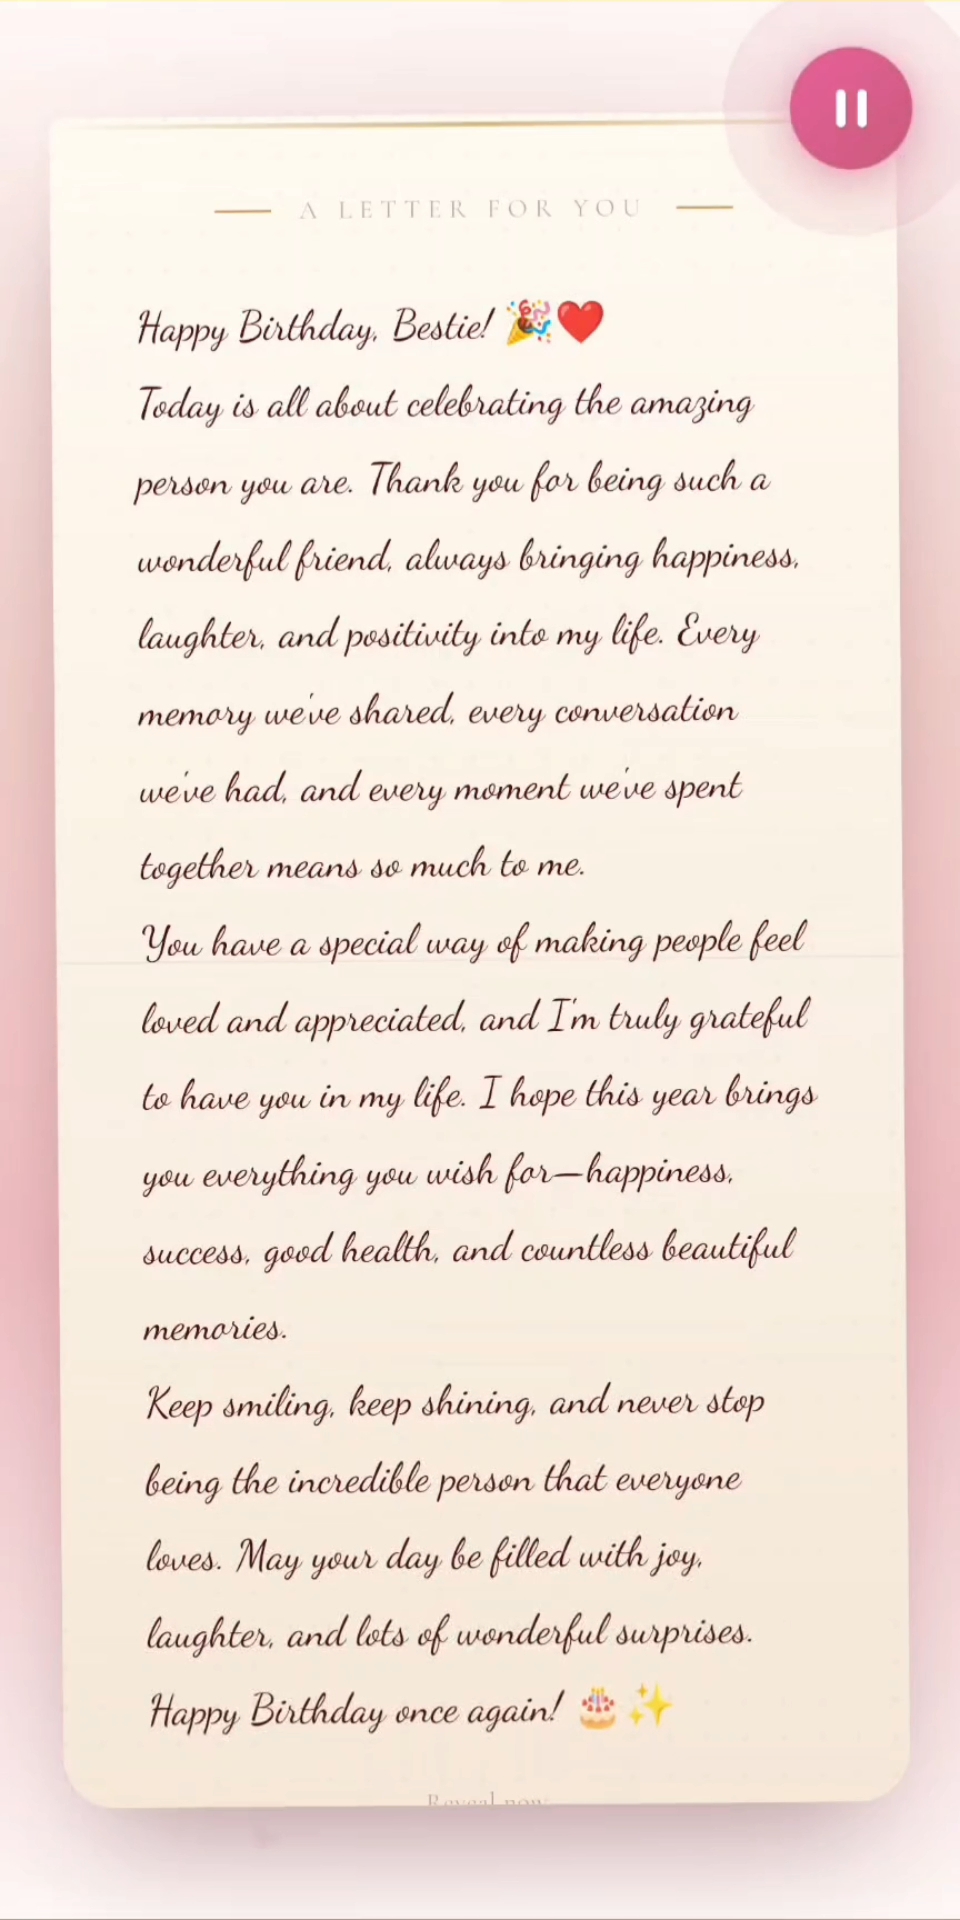 A LETTER FOR YOU
Happy Birthday, Bestie! 🎉❤️
Today is all about celebrating the amazing
person you are. Thank you for being such a
wonderful friend, always bringing happiness,
laughter, and positivity into my life. Every
memory we've shared, every conversation
we've had, and every moment we've spent
together means so much to me.
You have a special way of making people feel
loved and appreciated, and I'm truly grateful
to have you in my life. I hope this year brings
you everything you wish for—happiness,
success, good health, and countless beautiful
memories.
Keep smiling, keep shining, and never stop
being the incredible person that everyone
loves. May your day be filled with joy,
laughter, and lots of wonderful surprises.
Happy Birthday once again! 🎂✨
Reveal now